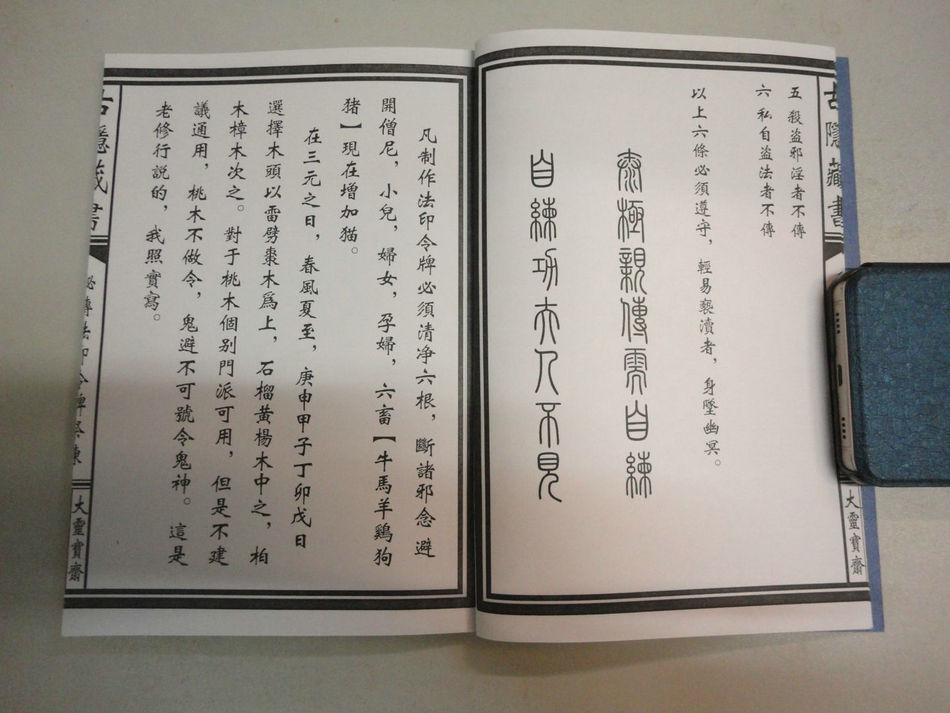 五 殺盗邪淫者不傳
六 私自盗法者不傳
以上六條必須遵守，輕易褻瀆者，身墜幽冥。
泰極親傳需自練
自練功夫人不見
古隱藏書
大靈寶齋
凡制作法印令牌必須清净六根，斷諸邪念避
開僧尼，小兒，婦女，孕婦，六畜【牛馬羊鷄狗
猪】現在增加猫。
在三元之日，春風夏至，庚申甲子丁卯戊日
選擇木頭以雷劈棗木爲上，石榴黄楊木中之，柏
木樟木次之。對于桃木個别門派可用，但是不建
議通用，桃木不做令，鬼避不可號令鬼神。這是
老修行説的，我照實寫。
古隱藏書
秘傳法印令牌祭煉
大靈寶齋